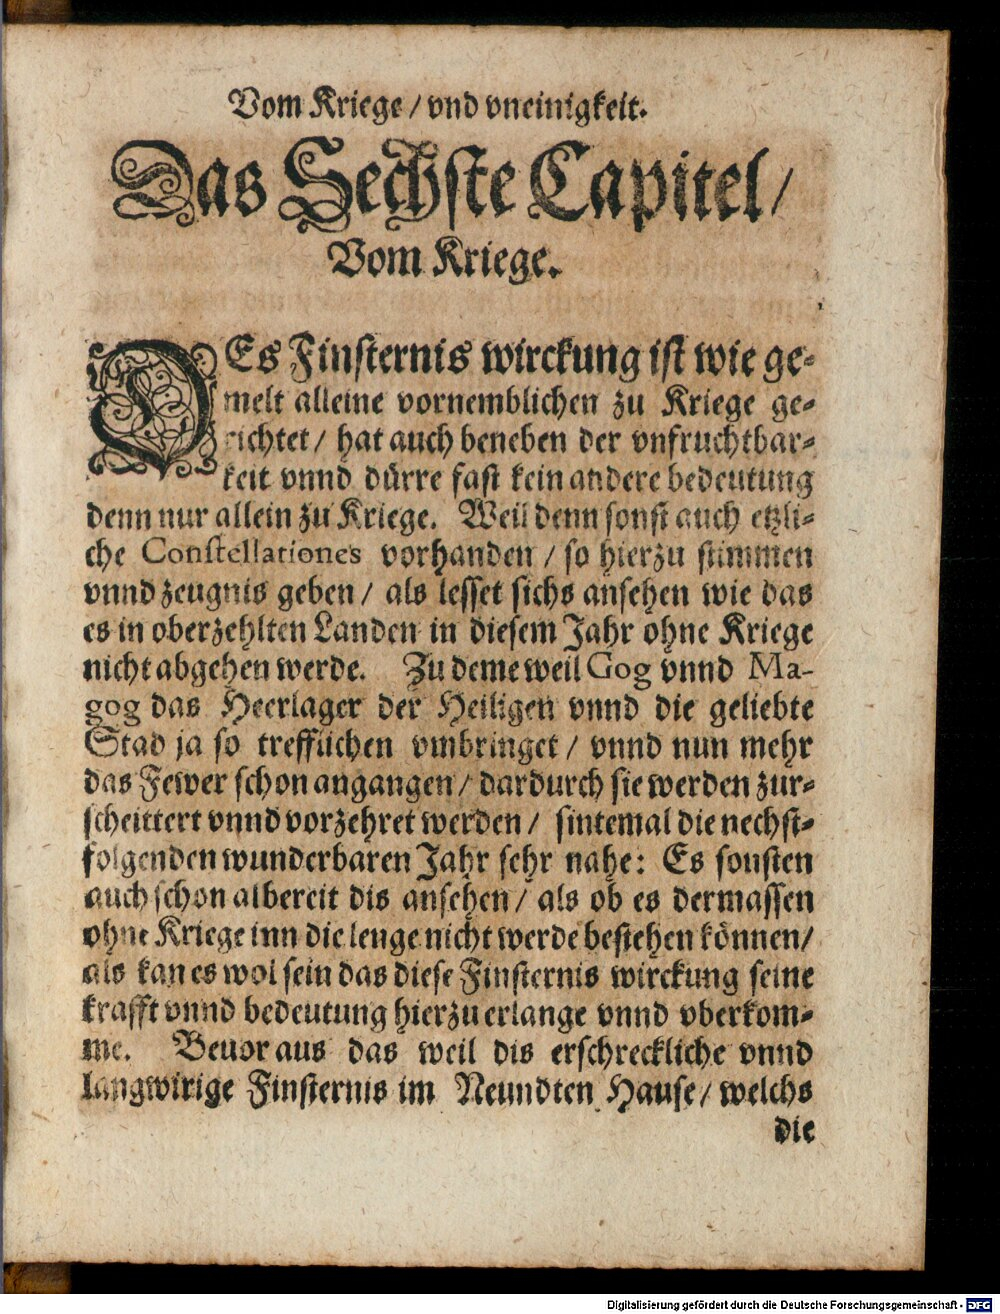 Vom Kriege / vnd vneinigkeit.
Das Sechste Capitel /
Vom Kriege.
DEs Finsternis wirckung ist wie ge-
melt alleine vornemblichen zu Kriege ge-
richtet / hat auch beneben der vnfruchtbar-
keit vnnd dürre fast kein andere bedeutung
denn nur allein zu Kriege. Weil denn sonst auch etzli-
che Constellationes vorhanden / so hierzu stimmen
vnnd zeugnis geben / als lesset sichs ansehen wie das
es in oberzehlten Landen in diesem Jahr ohne Kriege
nicht abgehen werde. Zu deme weil Gog vnnd Ma-
gog das Heerlager der Heiligen vnnd die geliebte
Stad ja so trefflichen vmbringet / vnnd nun mehr
das Fewer schon angangen / dardurch sie werden zur-
scheittert vnnd vorzehret werden / sintemal die nechst-
folgenden wunderbaren Jahr sehr nahe: Es sonsten
auch schon albereit dis ansehen / als ob es dermassen
ohne Kriege inn die lenge nicht werde bestehen können /
als kan es wol sein das diese Finsternis wirckung seine
krafft vnnd bedeutung hierzu erlange vnnd vberkom-
me. Beuor aus das weil dis erschreckliche vnnd
langwirige Finsternis im Neundten Hause / welchs
die
Digitalisierung gefördert durch die Deutsche Forschungsgemeinschaft - DFG